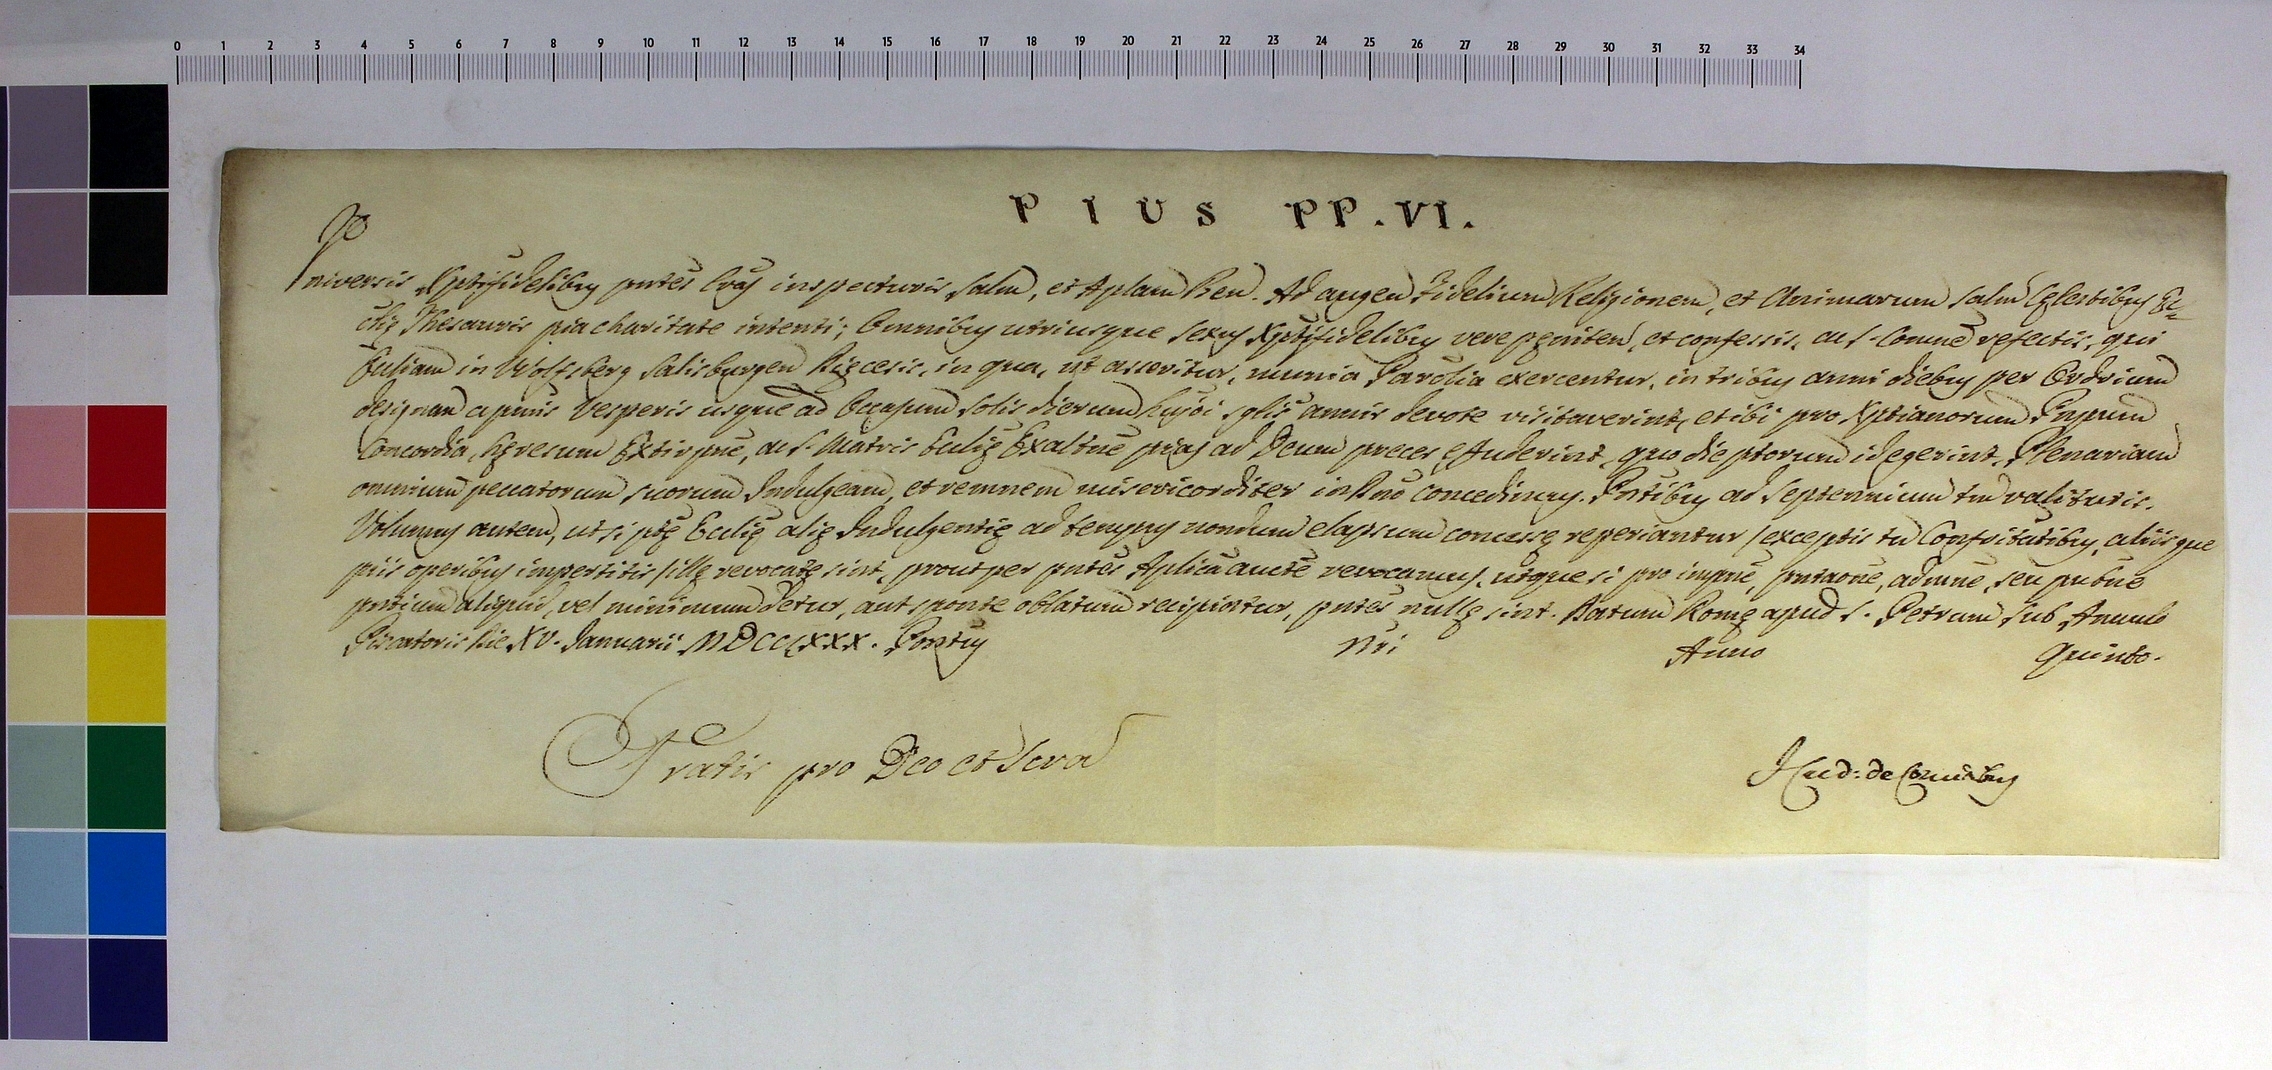 0 1 2 3 4 5 6 7 8 9 10 11 12 13 14 15 16 17 18 19 20 21 22 23 24 25 26 27 28 29 30 31 32 33 34
PIUS PP. VI.
Universis Xptifidelibus pntes Lras inspecturis salm, et Aplam Ben. Ad augen Fidelium Religionem, et Animarum salm Cęlestibus Ec=
clię Thesauris pia charitate intenti; Omnibus utriusque sexus Xptifidelibus vere pęniten, et confessis, ac s. Comne refectis, qui
Ecliam in Wolfsberg Salisburgen Dięcesis, in qua, ut asseritur, munia Parolia exercentur, in tribus anni diebus per Ordrium
designan a pmis Vesperis usque ad Occasum solis dierum hujõi sglis annis devote visitaverint, et ibi pro Xptianorum Pnpum
Concordia, hęresum Extirpne, ac s. Matris Eclię Exaltne pias ad Deum preces effuderint, quo die ptorum id egerint, Plenariam
omnium peccatorum suorum Indulgeam, et remnem misericorditer in Dno concedimus. Pntibus ad septennium tm valituris.
Volumus autem, ut si ptę Ecclię alię Indulgentię ad tempus nondum elapsum concessę reperiantur /exceptis tn Confritatibus, aliisque
piis operibus impertitis/ illę revocatę sint, prout per pntes Aplica aucte revocamus, utque si pro impne, pntaone, admne, seu pubne
pntium aliquid, vel minimum detur, aut sponte oblatum recipiatur, pntes nullę sint. Datum Romę apud S. Petrum sub Annulo
Piscatoris die XV. Januarii MDCCLXXX. Pontus Nri Anno Quinto.
Gratis pro Deo et Scra
I Card: de Comitibus